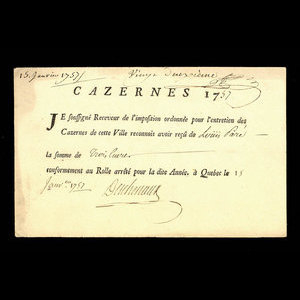 15 Janvier 1757
CAZERNES 1757
JE soussigné Receveur de l'imposition ordonnée pour l'entretien des
Cazernes de cette Ville reconnois avoir reçu de Louis Paré
la somme de trois livres
conformement au Rolle arrêté pour la dite Année, à Quebec le 15
Janv. 1757